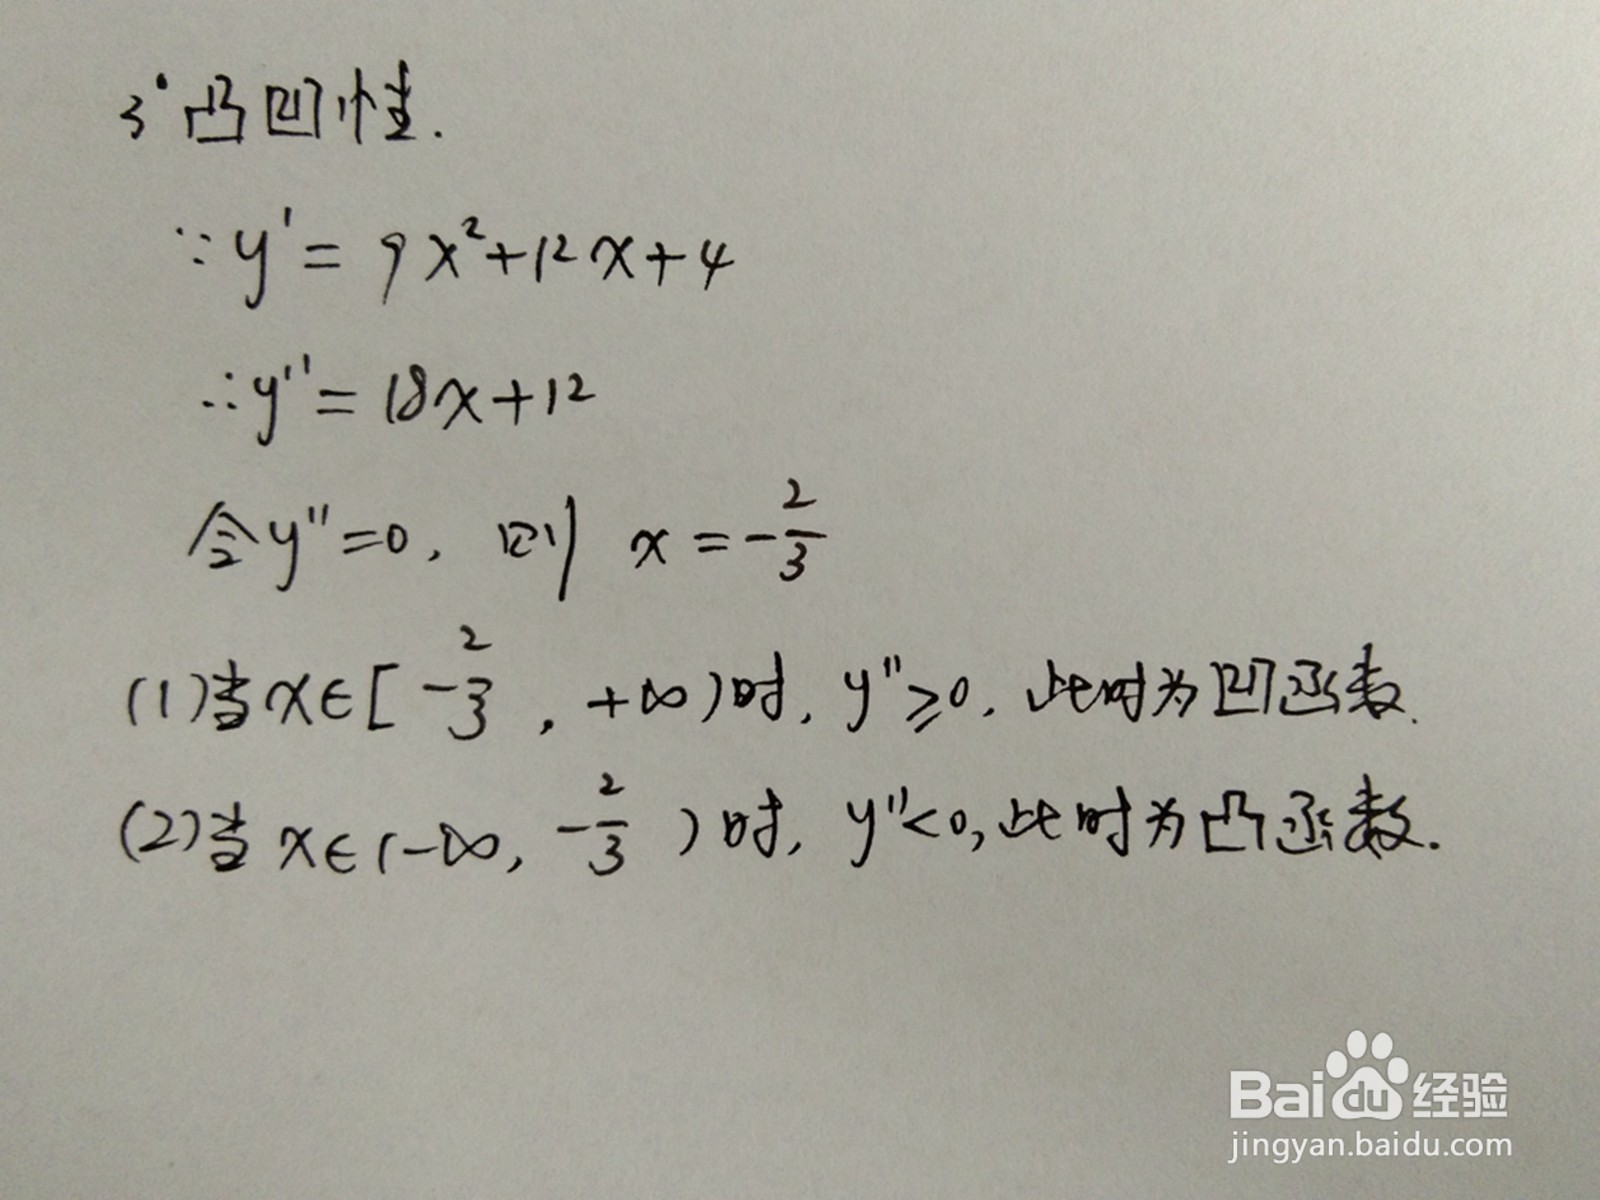 3°凸凹性.
∵y'=9x²+12x+4
∴y''=18x+12
令y''=0, 则 x=-2/3
(1)当x∈[-2/3, +∞)时, y''≥0, 此时为凹函数.
(2)当x∈(-∞, -2/3)时, y''<0, 此时为凸函数.
Baidu经验
jingyan.baidu.com